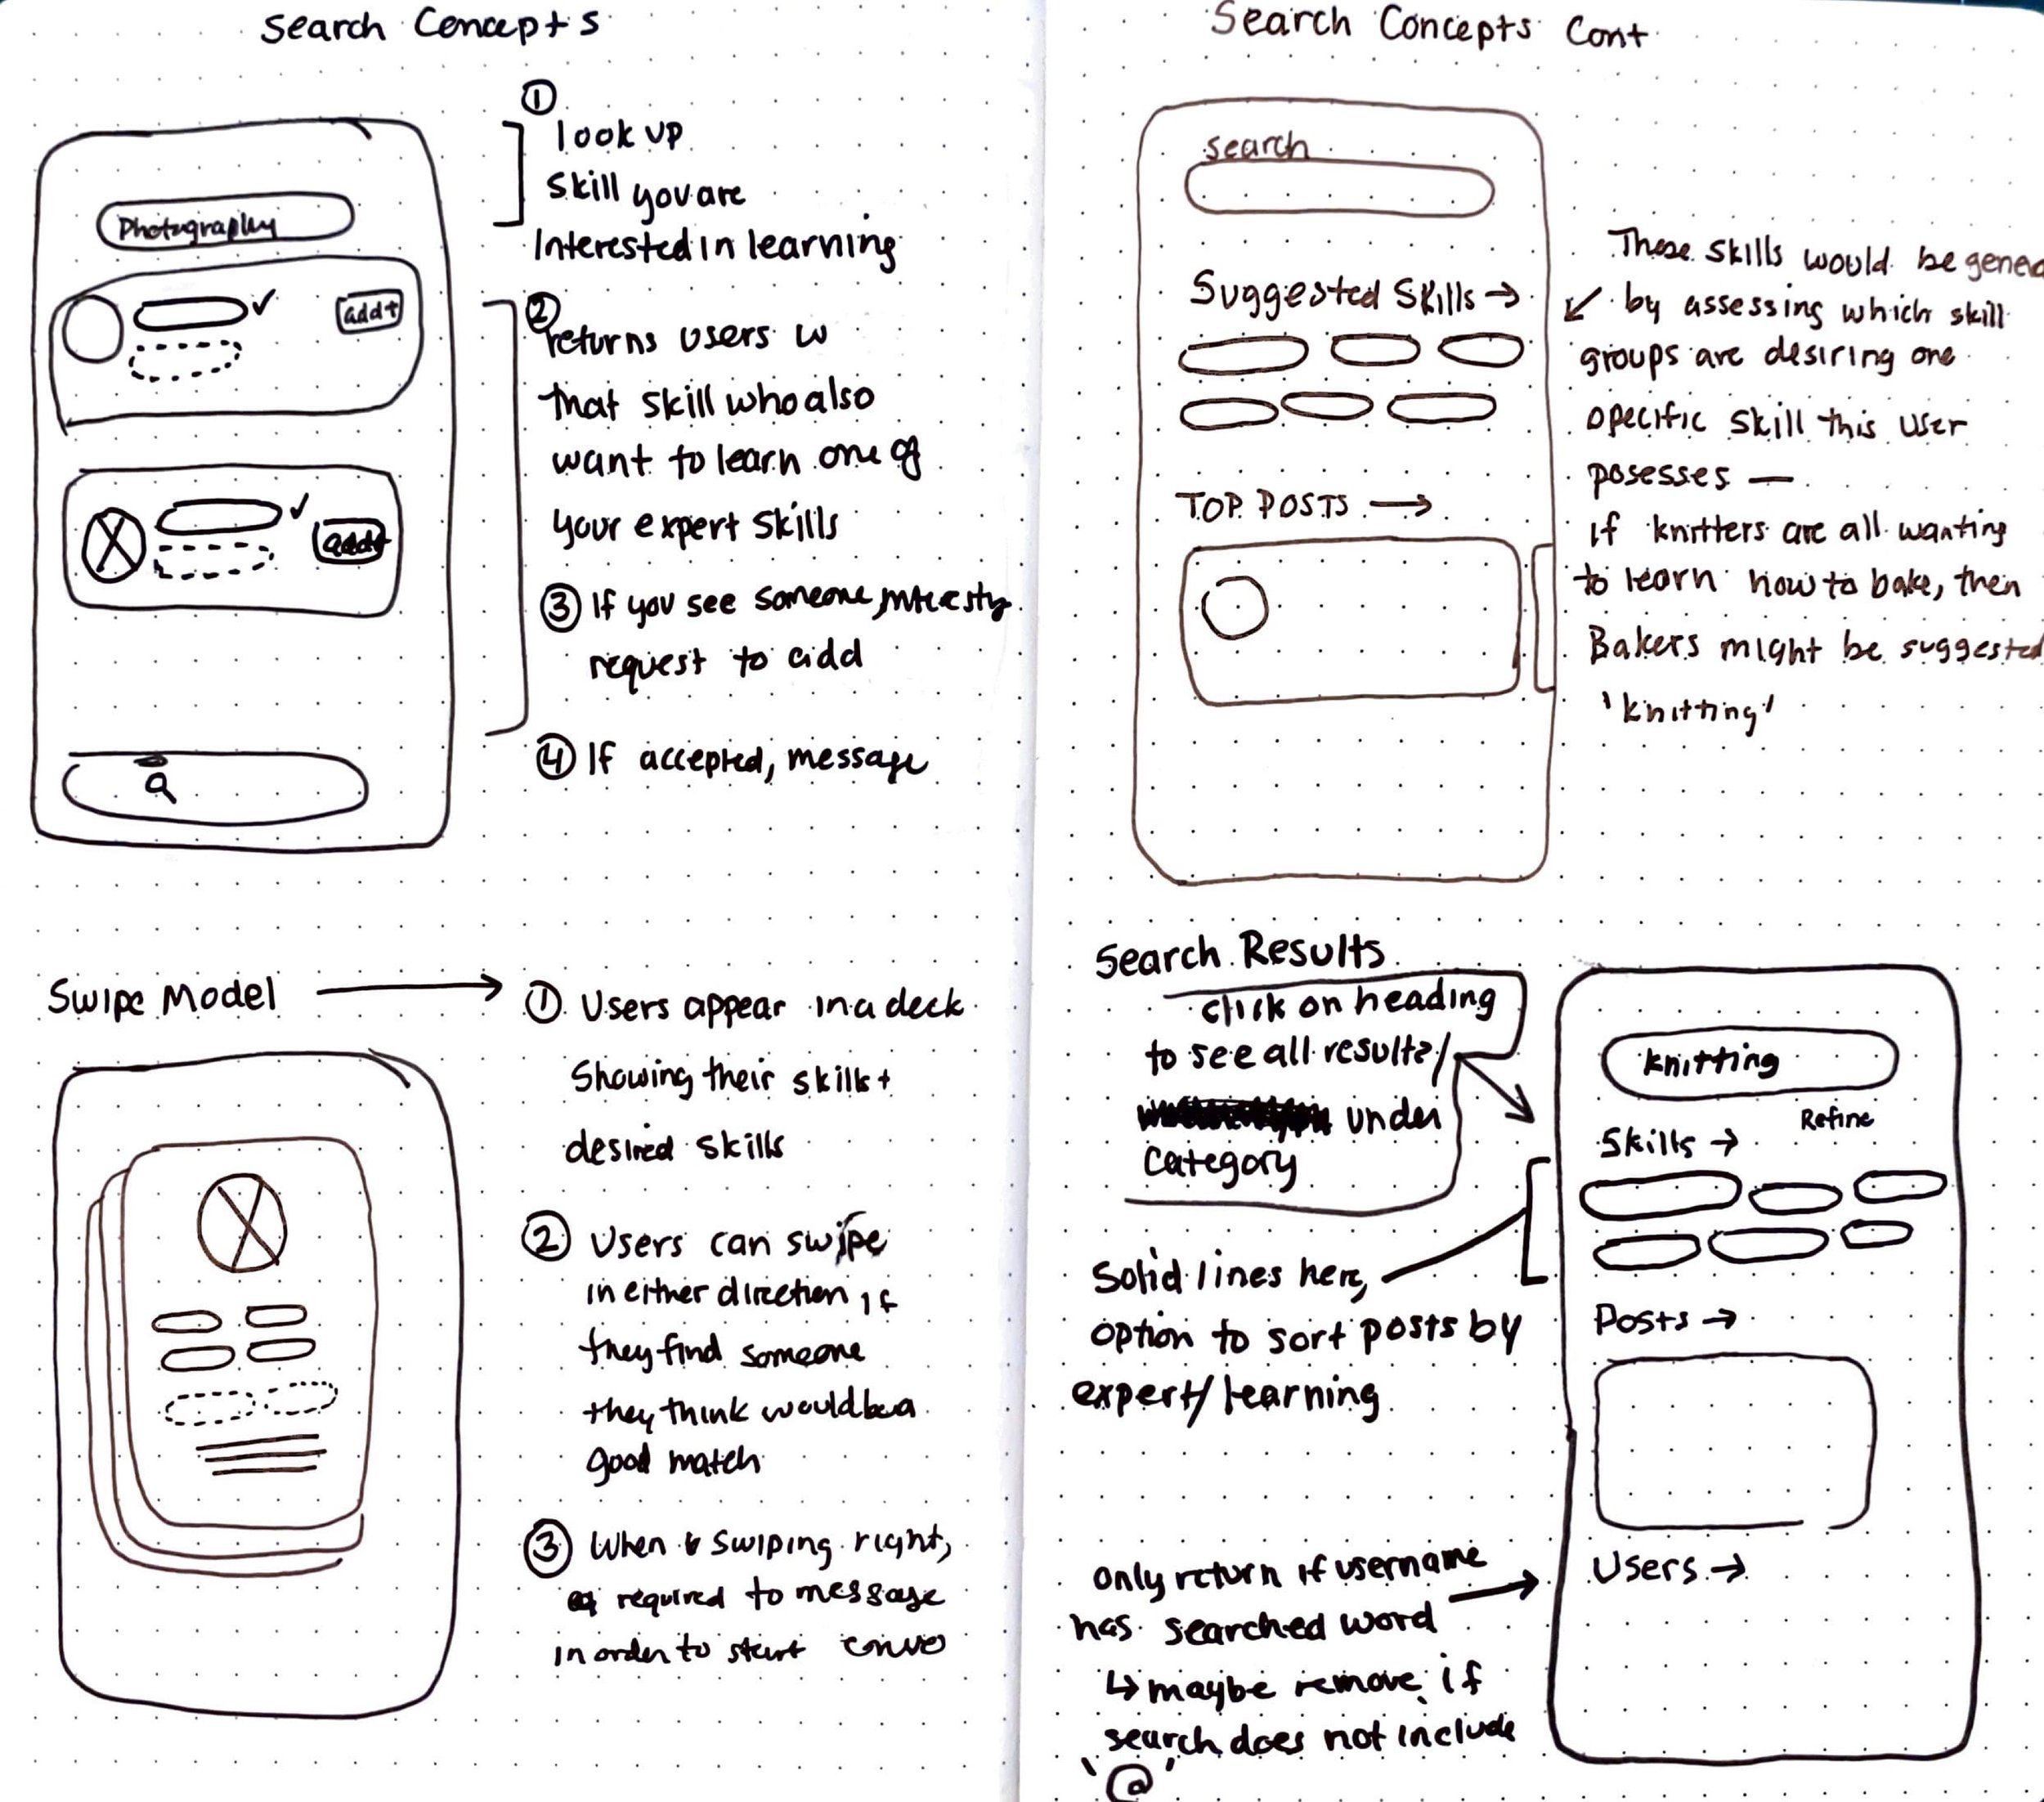 Search Concepts
Photography
add+
add+
①
look up
skill you are
Interested in learning
②
returns users w
that skill who also
want to learn one of
your expert skills
③ If you see someone
request to add
④ If accepted, message
Swipe Model
① Users appear in a deck
Showing their skills +
desired skills
② Users can swipe
in either direction if
they find someone
they think would be a
good match
③ When swiping right,
required to message
in order to start convo
Search Concepts Cont
search
Suggested Skills →
TOP POSTS →
These skills would be genera
by assessing which skill
groups are desiring one
specific skill this user
posesses —
if knitters are all wanting
to learn how to bake, then
Bakers might be suggested
'knitting'
Search Results
click on heading
to see all results/
under
category
Solid lines here,
option to sort posts by
expert/learning
only return if username
has searched word
↳ maybe remove if
search does not include
'@'
knitting
Refine
Skills →
Posts →
Users →